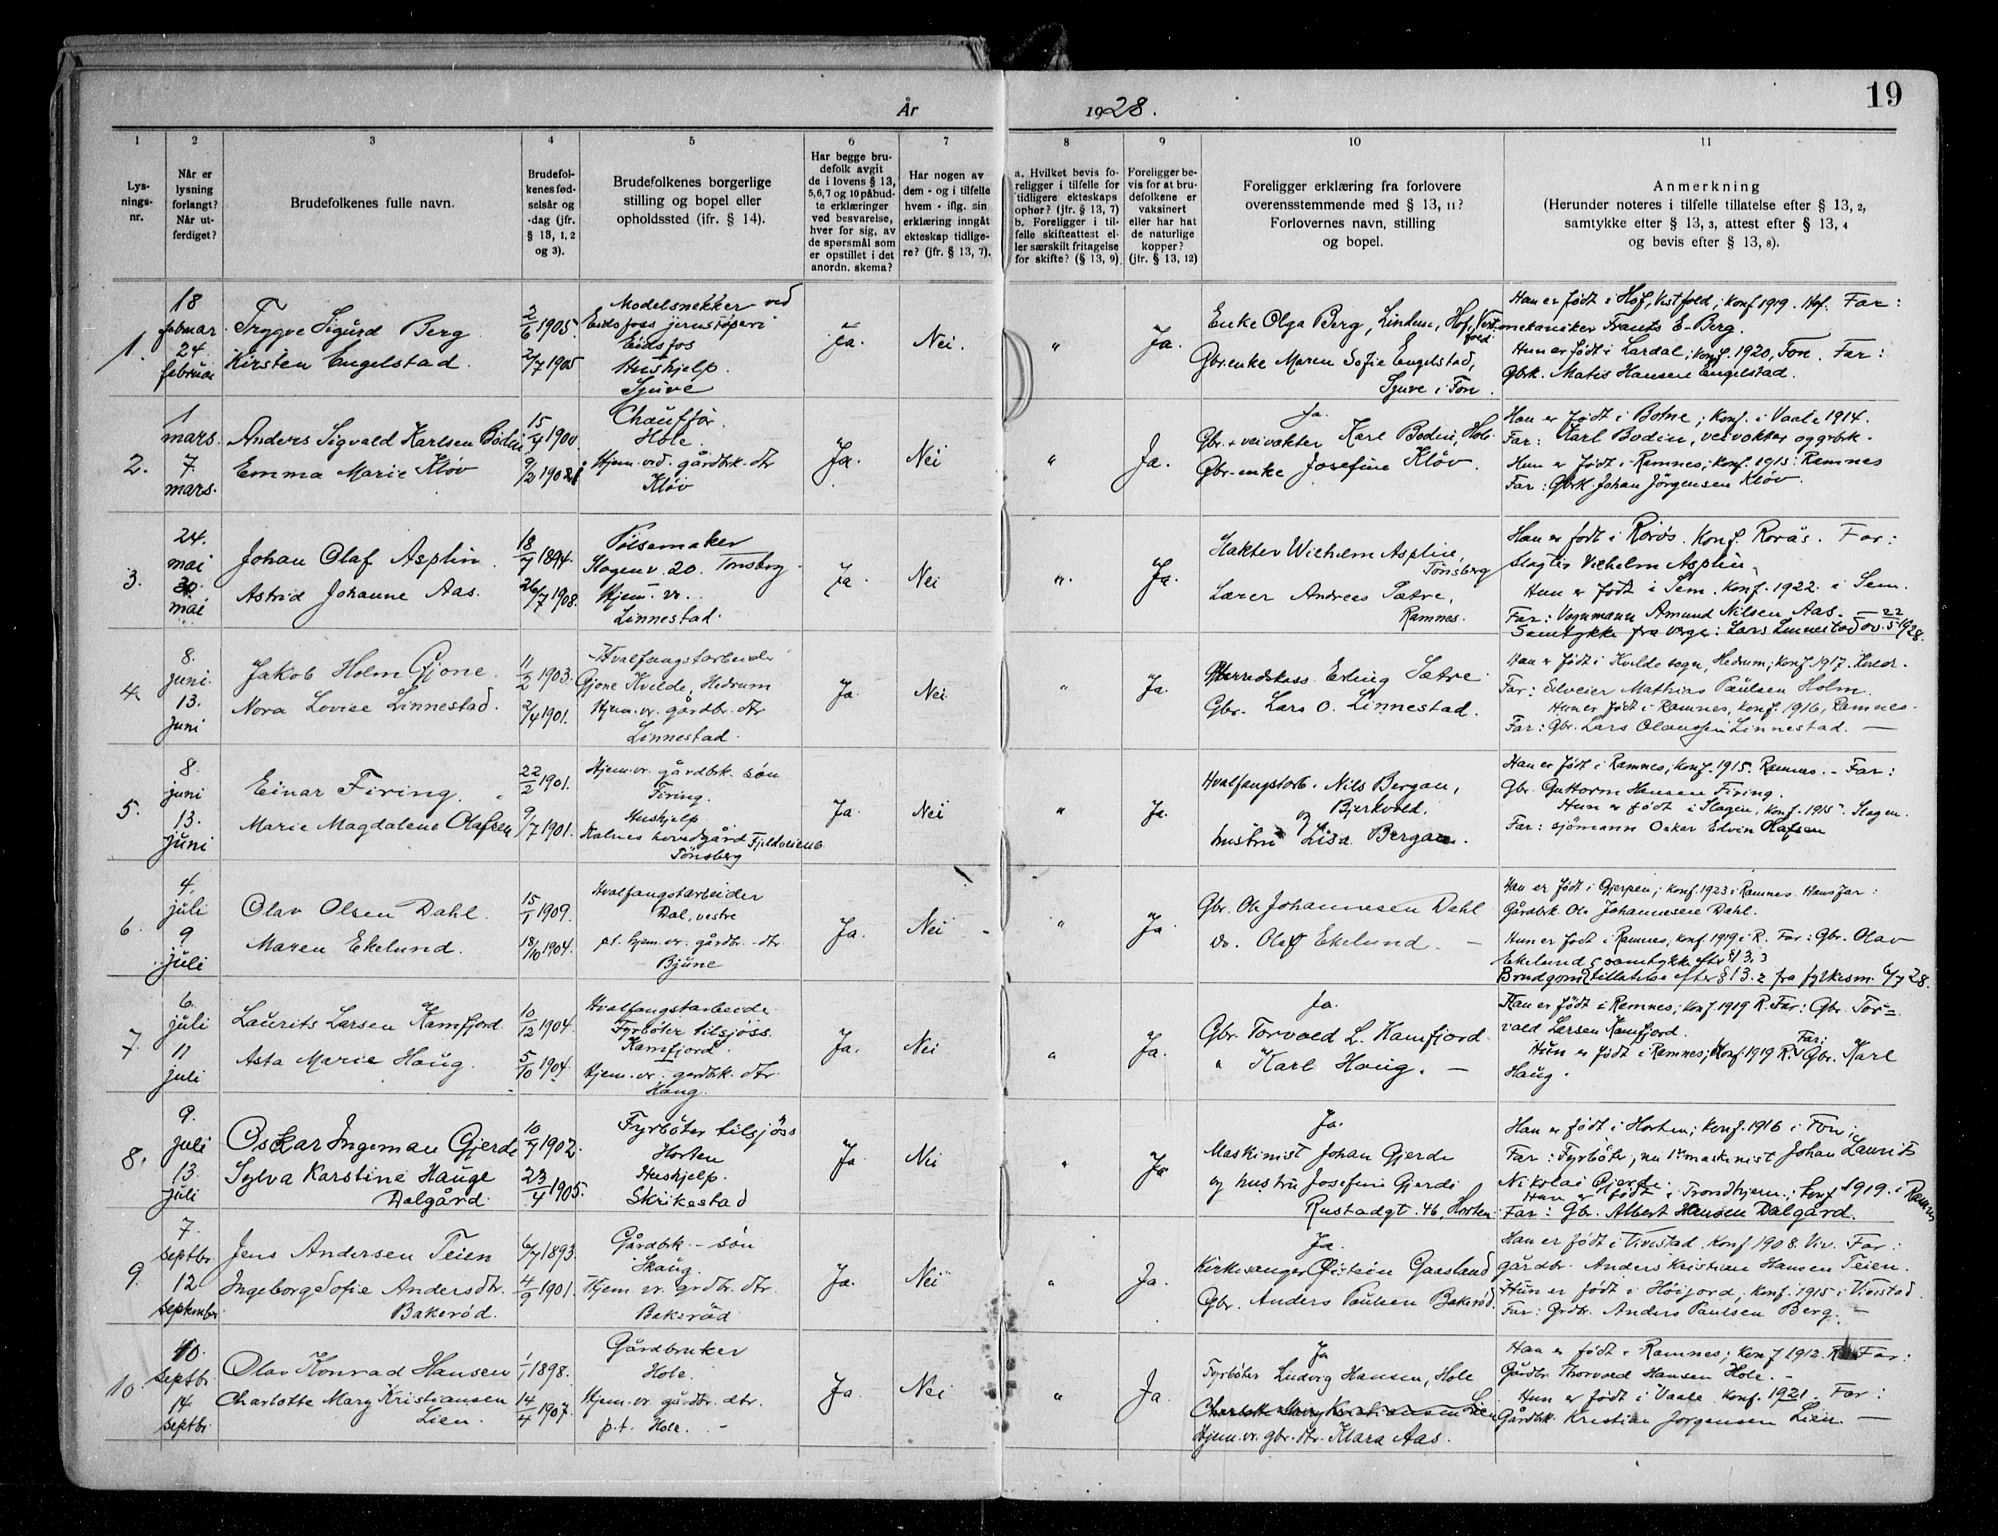 19
År 1928.
1
Lys-
nings-
nr.
2
Når er
lysning
forlangt?
Når ut-
ferdiget?
3
Brudefolkenes fulle navn.
4
Brudefol-
kenes fød-
selsår og
-dag (jfr.
§ 13, 1, 2
og 3).
5
Brudefolkenes borgerlige
stilling og bopel eller
opholdssted (ifr. § 14).
6
Har begge bru-
defolk avgit
de i lovens § 13,
5,6,7 og 10 påbud-
te erklæringer
ved besvarelse,
hver for sig, av
de spørsmål som
er opstillet i det
anordn. skema?
7
Har nogen av
dem - og i tilfelle
hvem - iflg. sin
erklæring inngåt
ekteskap tidlige-
re? (jfr. § 13, 7).
8
a. Hvilket bevis fo-
religger i tilfelle for
tidligere ekteskaps
ophør? (jfr. § 13, 7)
b. Foreligger i til-
felle skifteattest el-
ler særskilt fritagelse
for skifte? (§ 13, 9).
9
Foreligger be-
vis for at bru-
defolkene er
vaksinert
eller har hat
de naturlige
kopper?
(jfr. § 13, 12)
10
Foreligger erklæring fra forlovere
overensstemmende med § 13, 11?
Forlovernes navn, stilling
og bopel.
11
Anmerkning
(Herunder noteres i tilfelle tillatelse efter § 13, 2,
samtykke etter § 13, 3, attest efter § 13, 4
og bevis efter § 13, 8).
1.
18
februar
24.
februar
Trygve Sigurd Berg
Kirsten Engelstad.
2/6 1905.
2/7 1905
Modelsnekker ved
Eidsfoss jernstøperi
Eidsfos
Hushjelp.
Sjuve
Ja.
Nei.
"
Ja.
Enke Olga Berg, Lindum, Hof, Vest-
fold.
Gbr.enke Maren Sofie Engelstad,
Sjuve i Fon.
Han er født i Hof, Vestfold; konf 1919. Hof. Far:
mekaniker Frants E. Berg.
Hun er født i Lardal; konf. 1920, Fon. Far:
Gbrk. Matis Hansen Engelstad.
2.
1
mars.
7.
mars.
Anders Sigvald Karlsen Bodin
Emma Marie Kløv
15/4 1900
9/2 1902
Chauffør
Hole.
Hjem. ved. gårdbrk. dtr
Kløv
Ja.
Nei
"
Ja.
Ja.
Gbr. + veivokter Karl Bodin, Hole.
Gbr. enke Josefine Kløv.
Han er født i Botne; konf. i Vaale 1914.
Far: Karl Bodin, veivokter og grbk.
Hun er født i Ramnes; konf. 1915: Ramnes
Far: Gbrk. Johan Jörgensen Kløv.
3.
24.
mai
30.
mai
Johan Olaf Asplin.
Astrid Johanne Aas.
18/7 1894.
26/7 1908.
Pølsemaker
Slagenv. 20. Tønsberg.
Hjem. vr.
Linnestad.
Ja
Nei
"
Ja.
Slakter Wilhelm Asplin,
Tønsberg
Lærer Andreas Sætre,
Ramnes.
Han er født i Røros. Konf. Rorås. Far:
slagter Vilhelm Asplin,
Hun er født i Sem. Konf. 1922. i Sem.
Far: Vognmann Amund Nilsen Aas.
Samtykke fra verge: Lars Linnestad av 22/5 1928.
4.
8.
juni.
13.
juni
Jakob Holm Gjone.
Nora Lovise Linnestad.
11/2 1903.
2/4 1901.
Hvalfangstarbeider
Gjone Kvelde, Hedrum
Hjem. vr. gårdbr. dtr
Linnestad.
Ja
Nei
"
Ja.
Herredskass. Erling Sætre.
Gbr. Lars O. Linnestad.
Han er født i Kvelde sogn, Hedrum; konf. 1917. Kveld.
Far: Selveier Mathias Paulsen Holm.
Hun er født i Ramnes, konf. 1916, Ramnes.
Far: Gbr. Lars Olaussen Linnestad.
5.
8.
juni
13.
juni
Einar Firing.
Marie Magdalene Olafsen
22/2 1901.
9/7 1901.
Hjem. vr. gårdbrk. søn
Firing.
Hushjelp
Kalnes hovedgård Fjeldveien 6
Tønsberg
Ja.
Nei
"
Ja.
Hvalfangstarb. Nils Bergan,
Bjerkvold.
og
hustru Lisa Bergan.
Han er født i Ramnes, konf. 1915. Ramnes. - Far:
Gbr. Guttorm Hansen Firing.
Hun er født i Slagen, konf. 1915. Slagen.
Far: sjömann Oskar Edvin Olafsen
6.
4.
juli
9
juli
Olav Olsen Dahl.
Maren Ekelund.
15/1 1909.
18/10 1904.
Hvalfangstarbeider
Dal, vestre
p.t. hjem. vr. gårdbr. dtr
Bjune
Ja.
Nei
"
Ja
Gbr. Ole Johannesen Dahl
do. Olaf Ekelund.
Han er født i Gjerpen; konf. 1923 i Ramnes. Hans far:
Gårdbrk. Ole Johannesen Dahl.
Hun er født i Ramnes, konf. 1919 i R. Far: Gbr. Olav
Ekelund samtykke efter § 13.3
Brudgom tillatelse efter § 13.2 fra fylkesm. 6/7 28.
7.
6.
juli
11
juli
Laurits Larsen Kamfjord
Asta Marie Haug.
10/12 1904.
5/10 1904.
Hvalfangstarbeide.
Fyrbøter tilsjøss.
Kamfjord.
Hjem. vr. gerdbk. dtr.
Haug.
Ja.
Nei
"
Ja.
Ja.
Gbr. Torvald L. Kamfjord.
" Karl Haug.
Han er født i Ramnes; konf 1919 R. Far: Gbr. Tor-
vald Larsen Kamfjord.
Hun er født i Ramnes; Konf. 1919 R. Far: Gbr. Karl
Haug.
8.
9.
juli
13.
juli
Oskar Ingeman Gjerde
Sylva Karstine Hauge
Dalgård.
10/9 1902.
23/4 1905.
Fyrbøter tilsjøss
Horten
Hushjelp.
Skrikestad
Ja
Nei
"
Ja
Ja.
Maskinist Johan Gjerde
og hustru Josefine Gjerde
Rustadgt. 46, Horten.
Han er født i Horten; konf. 1916 i Fon;
Far: Fyrbøter, nu 1ste maskinist Johan Laurits
Nikolai Gjerde.
Hun er født i Trondhjem; konf 1919. i Ramnes
Far: Gbr. Albert Hansen Dalgård.
9.
7.
septbr.
12
september
Jens Andersen Teien
Ingeborg Sofie Andersdtr.
Bakerød.
6/7 1893.
4/9 1901.
Gårdbk. - søn
Skaug.
Hjem. vr. grdbr. dtr.
Bakerød
Ja.
Nei
"
Ja.
Ja.
Kirkesanger Øistein Gaasland
Gbr. Anders Paulsen Bakerød.
Han er født i Vivestad. konf 1908. Viv. Far:
gårdbr. Anders Kristian Hansen Teien.
Hun er født i Höijord; konf. 1915 i Vivestad.
Far: Grdbr. Anders Paulsen Berg.
10.
10.
septbr.
14
septbr
Olav Konrad Hansen
Charlotte Mary Kristiansen
Lien.
1/1 1898.
14/4 1907.
Gårdbruker
Hole.
Hjem. vr gårdbr. dtr.
p.t. Hole.
Ja.
Nei
"
Ja.
Ja
Fyrbøter Ludvig Hansen, Hole
Charlotte Mary Kristiansen Lien
Hjem. vr. gbr. dtr. Klara Aas.
Han er født i Ramnes; konf 1912. R Far:
Gårdbr. Thorvald Hansen Hole.
Hun er født i Vaale konf. 1921. Far:
Gårdbk. Kristian Jørgensen Lien